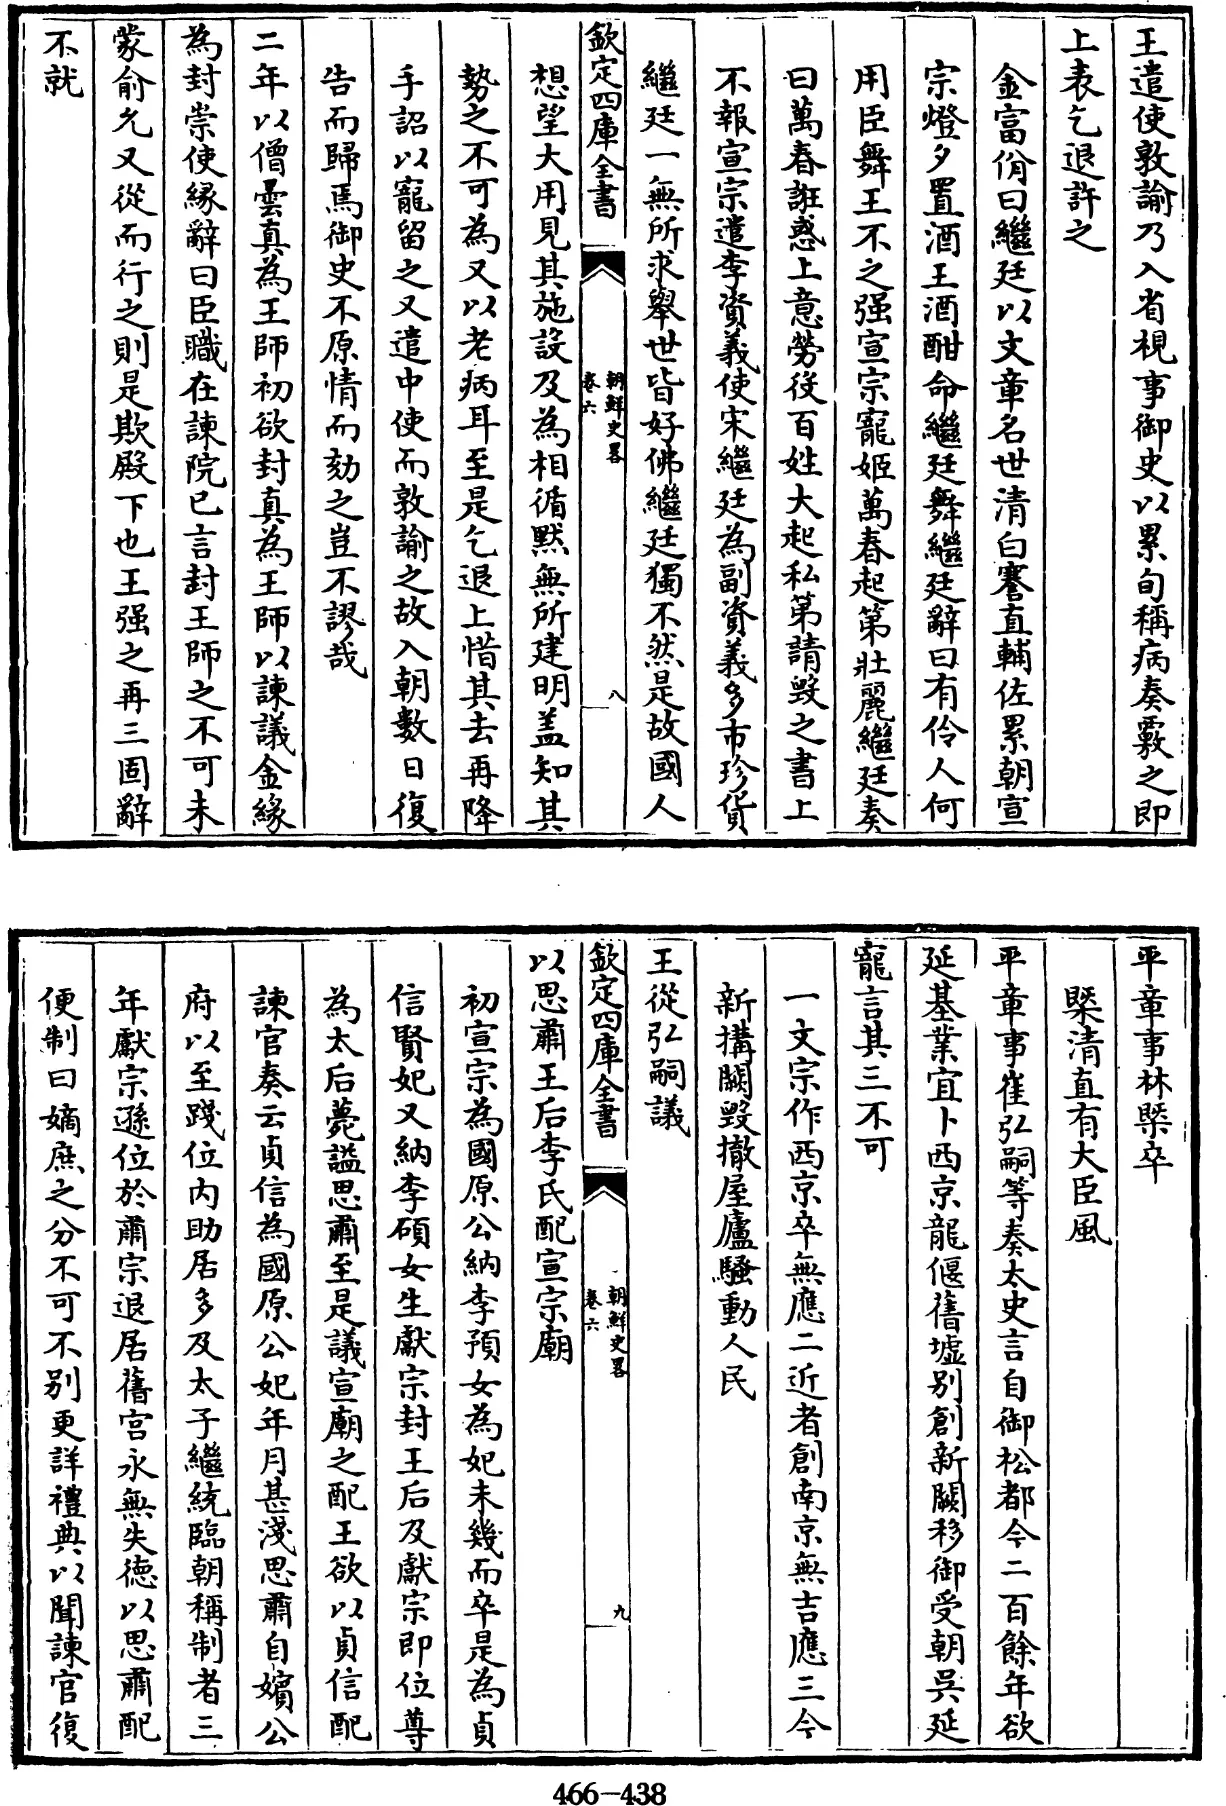 王遣使敦諭乃入省視事御史以累旬稱病奏覈之即
上表乞退許之
金富佾曰繼廷以文章名世清白謇直輔佐累朝宣
宗燈夕置酒王酒酣命繼廷舞繼廷辭曰有伶人何
用臣舞王不之强宣宗寵姬萬春起第壯麗繼廷奏
曰萬春誑惑上意勞役百姓大起私第請毀之書上
不報宣宗遣李資義使宋繼廷為副資義多市珍貨
繼廷一無所求舉世皆好佛繼廷獨不然是故國人
欽定四庫全書
朝鮮史畧
卷六
八
想望大用見其施設及為相循默無所建明盖知其
勢之不可為又以老病耳至是乞退上惜其去再降
手詔以寵留之又遣中使而敦諭之故入朝數日復
告而歸馬御史不原情而劾之豈不謬哉
二年以僧曇真為王師初欲封真為王師以諫議金緣
為封崇使緣辭曰臣職在諫院已言封王師之不可未
蒙俞允又從而行之則是欺殿下也王强之再三固辭
不就
平章事林槩卒
槩清直有大臣風
平章事崔弘嗣等奏太史言自御松都今二百餘年欲
延基業宜卜西京龍偃舊墟別創新闕移御受朝吳延
寵言其三不可
一文宗作西京卒無應二近者創南京無吉應三今
新搆闕毀撤屋廬騷動人民
王從弘嗣議
欽定四庫全書
朝鮮史畧
卷六
九
以思肅王后李氏配宣宗廟
初宣宗為國原公納李預女為妃未幾而卒是為貞
信賢妃又納李碩女生獻宗封王后及獻宗即位尊
為太后薨謚思肅至是議宣廟之配王欲以貞信配
諫官奏云貞信為國原公妃年月甚淺思肅自嬪公
府以至踐位內助居多及太子繼統臨朝稱制者三
年獻宗遜位於肅宗退居舊宫永無失德以思肅配
便制曰嫡庶之分不可不別更詳禮典以聞諫官復
466-438